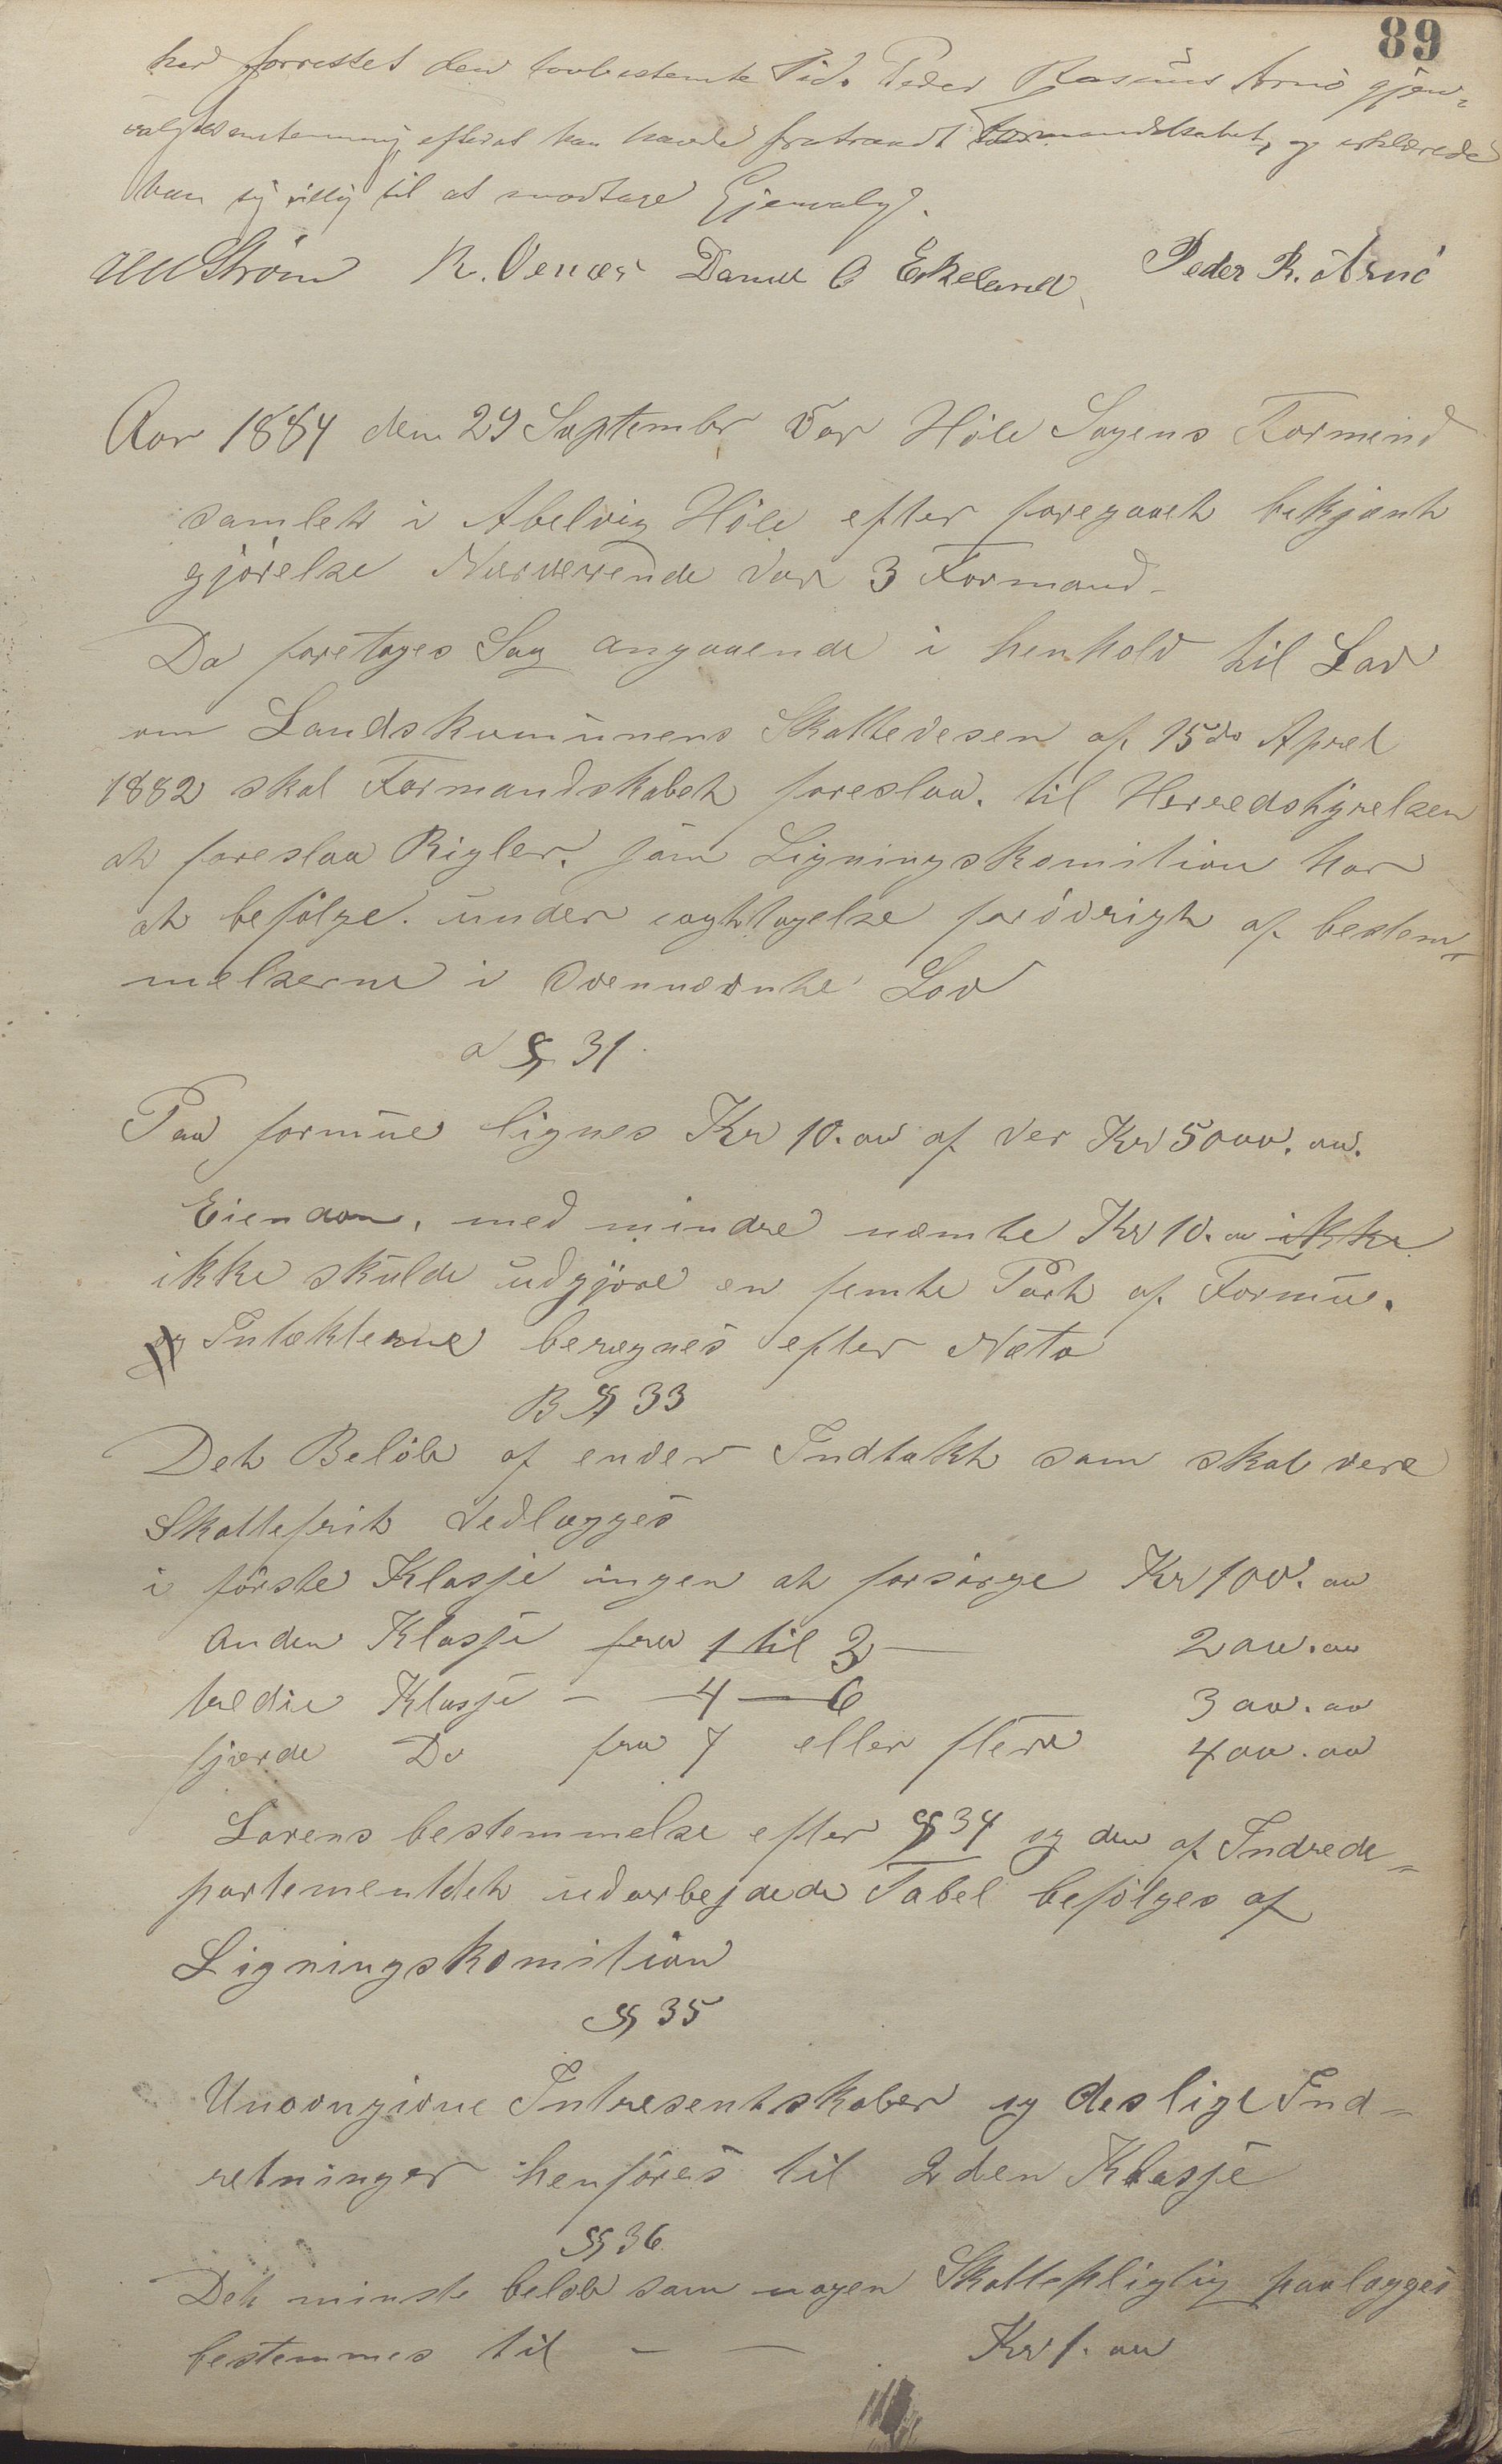 89
har forrettet den lovbestemte Tid. Peder Rasmus Arnö gjen-
valgtes enstemmig, efterat han havde fratraadt Formandskabet, og erklærede
han sig villig til at modtage Gjenvalg.
Ström R. Venæs Daniel O Eikeland Peder R. Arnö
Aar 1884 den 29 September var Höle Sogens Formend
samlet i Abelvig Höle efter foregaaet bekjent
gjörelse Nærværende var 3 Formænd-
Da foretoges Sag angaaende i henhold til Lav
om Landskomunens Skattevesen af 15de April
1882 skal Formandskabet foreslaa. til Herredstyrelsen
at foreslaa Rigler. som Ligningskomition har
at befölge. under iagttagelse forövrigt af bestem-
melserne i Ovennevnte Lov
a § 31
Paa formue lignes Kr 10.00 af ver Kr 5000.00.
Eiendom, med mindre næmte Kr 10.00 ikke
ikke skulde udgjöre en femte Part af Formue.
og Intækterne beregnes efter Neto
B § 33
Det Belöb af enver Indtækt som skal vere
Skattefrit vedlægges
i förste Klasse ingen at forsörge Kr 100.00
anden Klasse fra 1 til 3 — 200.00
tredie Klasse - - 4 — 6 300.00
fjerde Do fra 7 eller flere 400.00
Lovens bestemmelse efter § 34 og den af Indrede-
partementdet udarbejdede Tabel befölges af
Ligningskomition
§ 35
Unavngivne Intresentskaber og deslige Ind-
retninger henföres til 2den Klasse
§ 36
Det minste belöb som nogen Skattepligtig paalægges
bestemmes til — — Kr 1.00